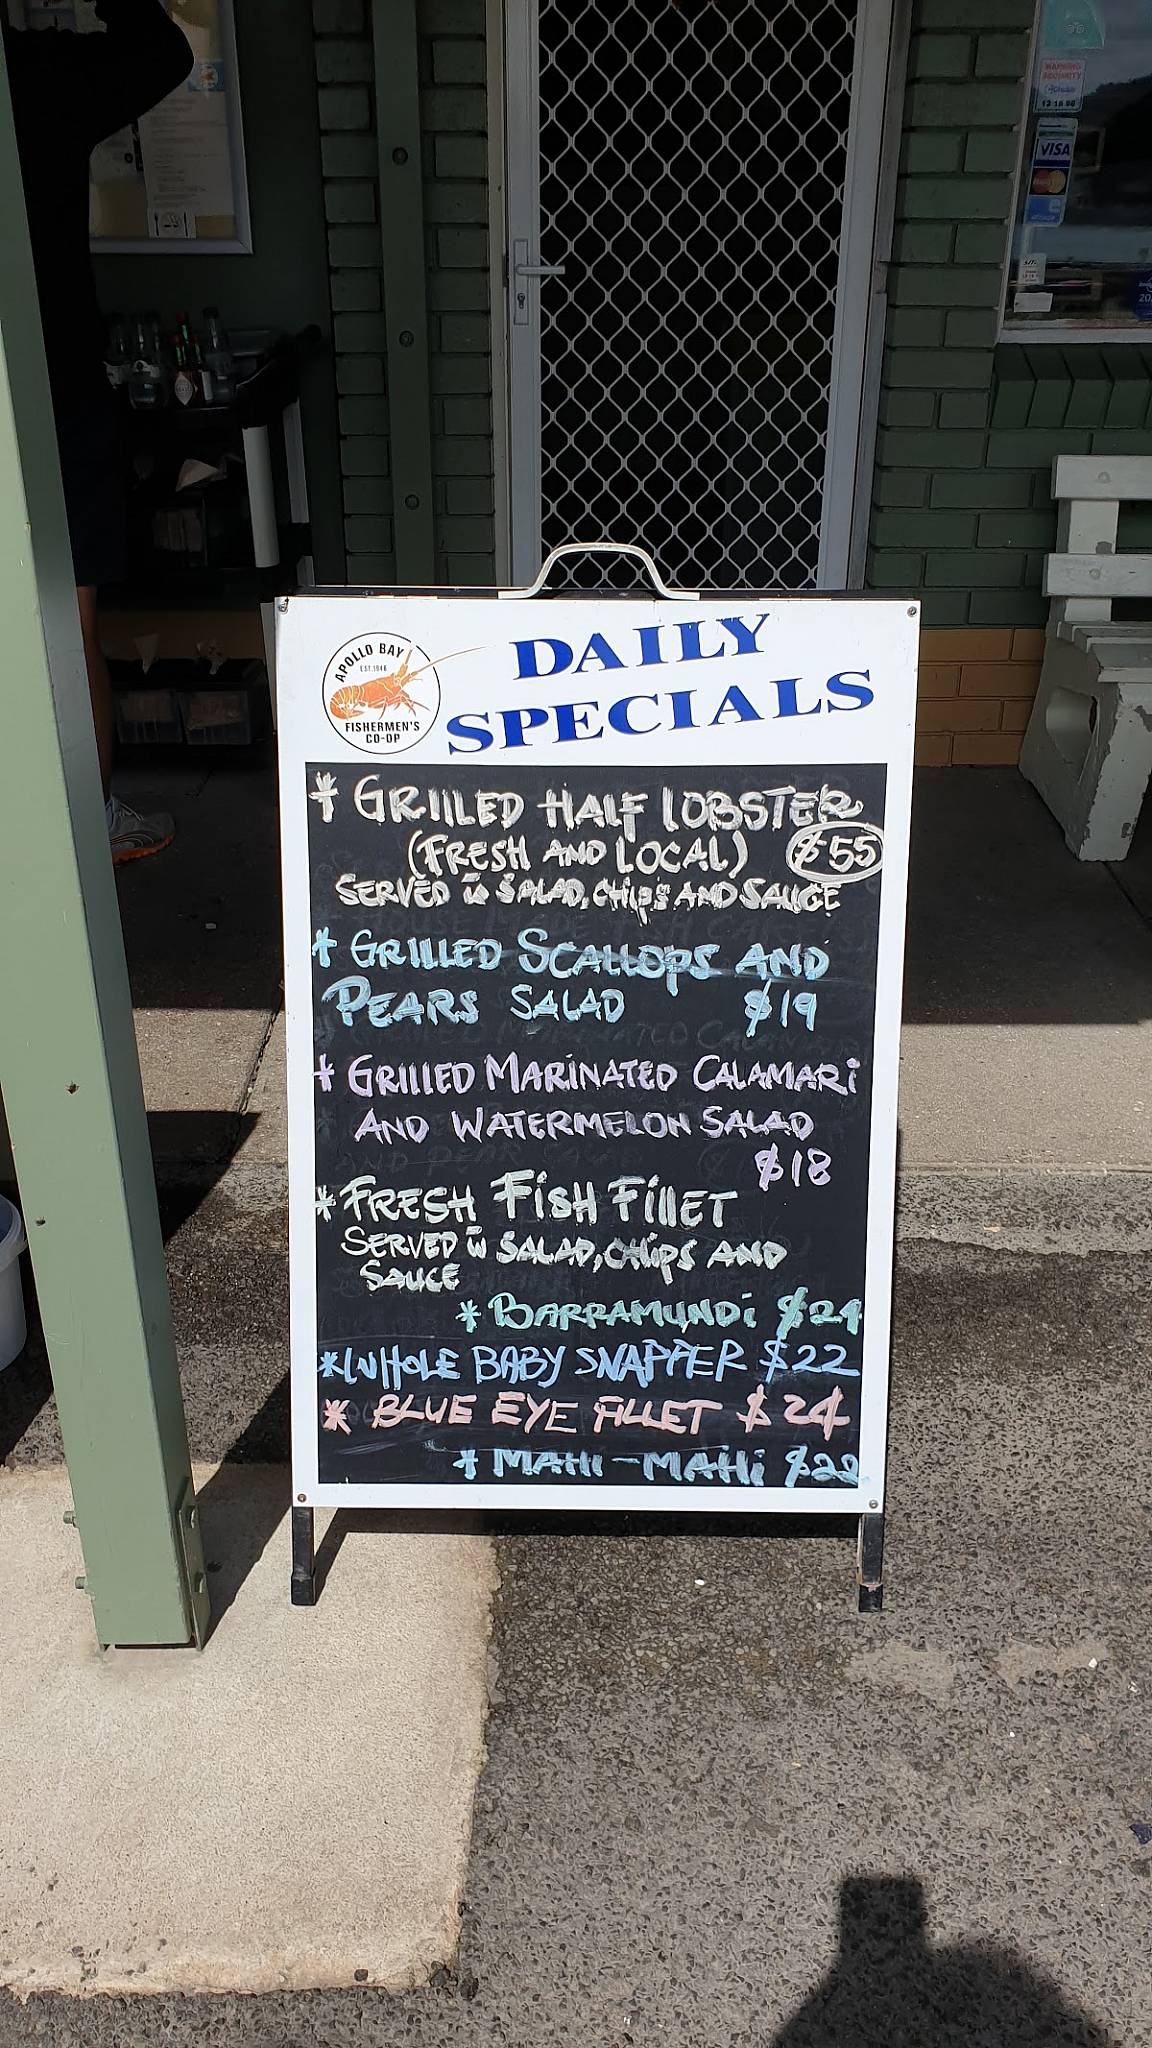 APOLLO BAY
EST.1946
FISHERMEN'S
CO-OP
DAILY
SPECIALS
* GRILLED HALF LOBSTER
(FRESH AND LOCAL) $55
SERVED W SALAD, CHIPS AND SAUCE
* GRILLED SCALLOPS AND
PEARS SALAD $19
* GRILLED MARINATED CALAMARI
AND WATERMELON SALAD
$18
* FRESH FISH FILLET
SERVED W SALAD, CHIPS AND
SAUCE
* BARRAMUNDI $24
* WHOLE BABY SNAPPER $22
* BLUE EYE FILLET $24
* MAHI-MAHI $22
WARNING
SECURITY
VISA